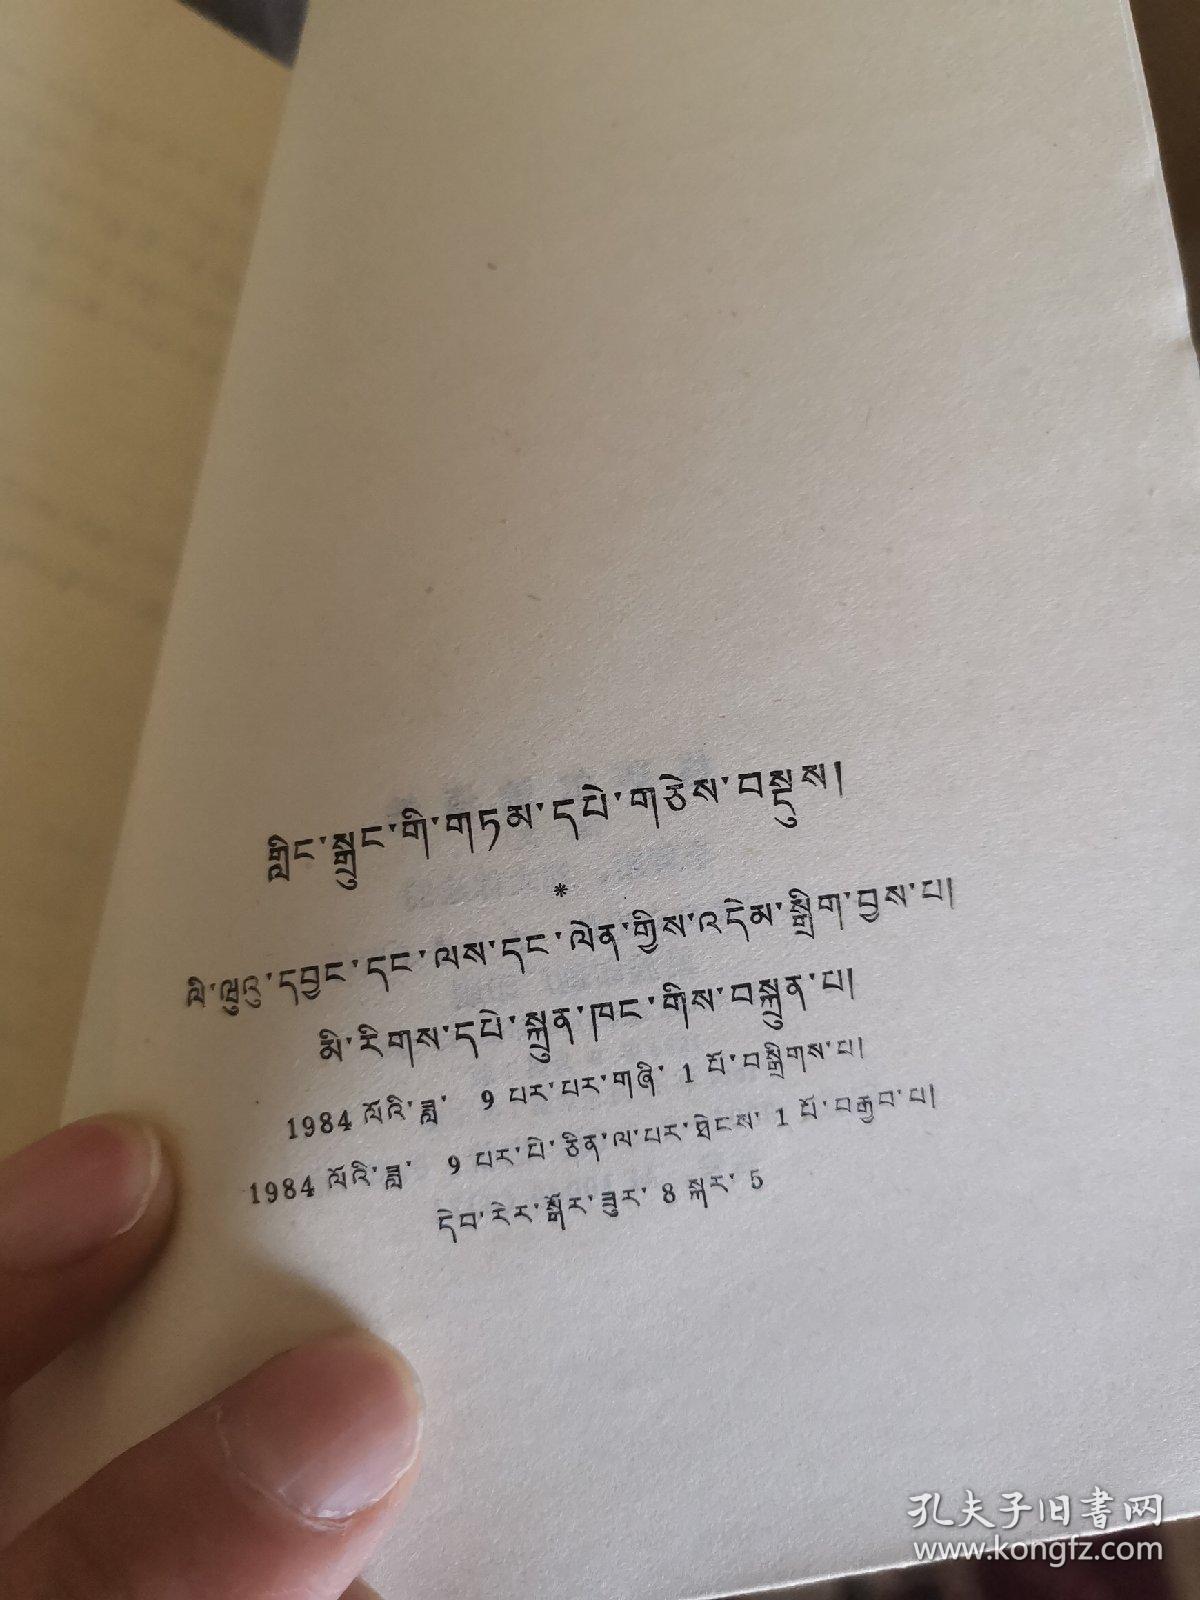 གླིང་སྒྲུང་གི་གཏམ་དཔེ་གཅེས་བསྡུས།
*
ལི་ལུའུ་དབྱང་དང་ལས་དང་ལེན་གྱིས་འདེམ་སྒྲིག་བྱས་པ།
མི་རིགས་དཔེ་སྐྲུན་ཁང་གིས་བསྐྲུན་པ།
1984 ལོའི་ཟླ་ 9 པར་པར་གཞི་ 1 པོ་བསྒྲིགས་པ།
1984 ལོའི་ཟླ་ 9 པར་པེ་ཅིན་ལ་པར་ཐེངས་ 1 པོ་བརྒྱབ་པ།
དེབ་རེར་སྒོར་ཟུར་ 8 སྐར་ 5
孔夫子旧书网
www.kongfz.com